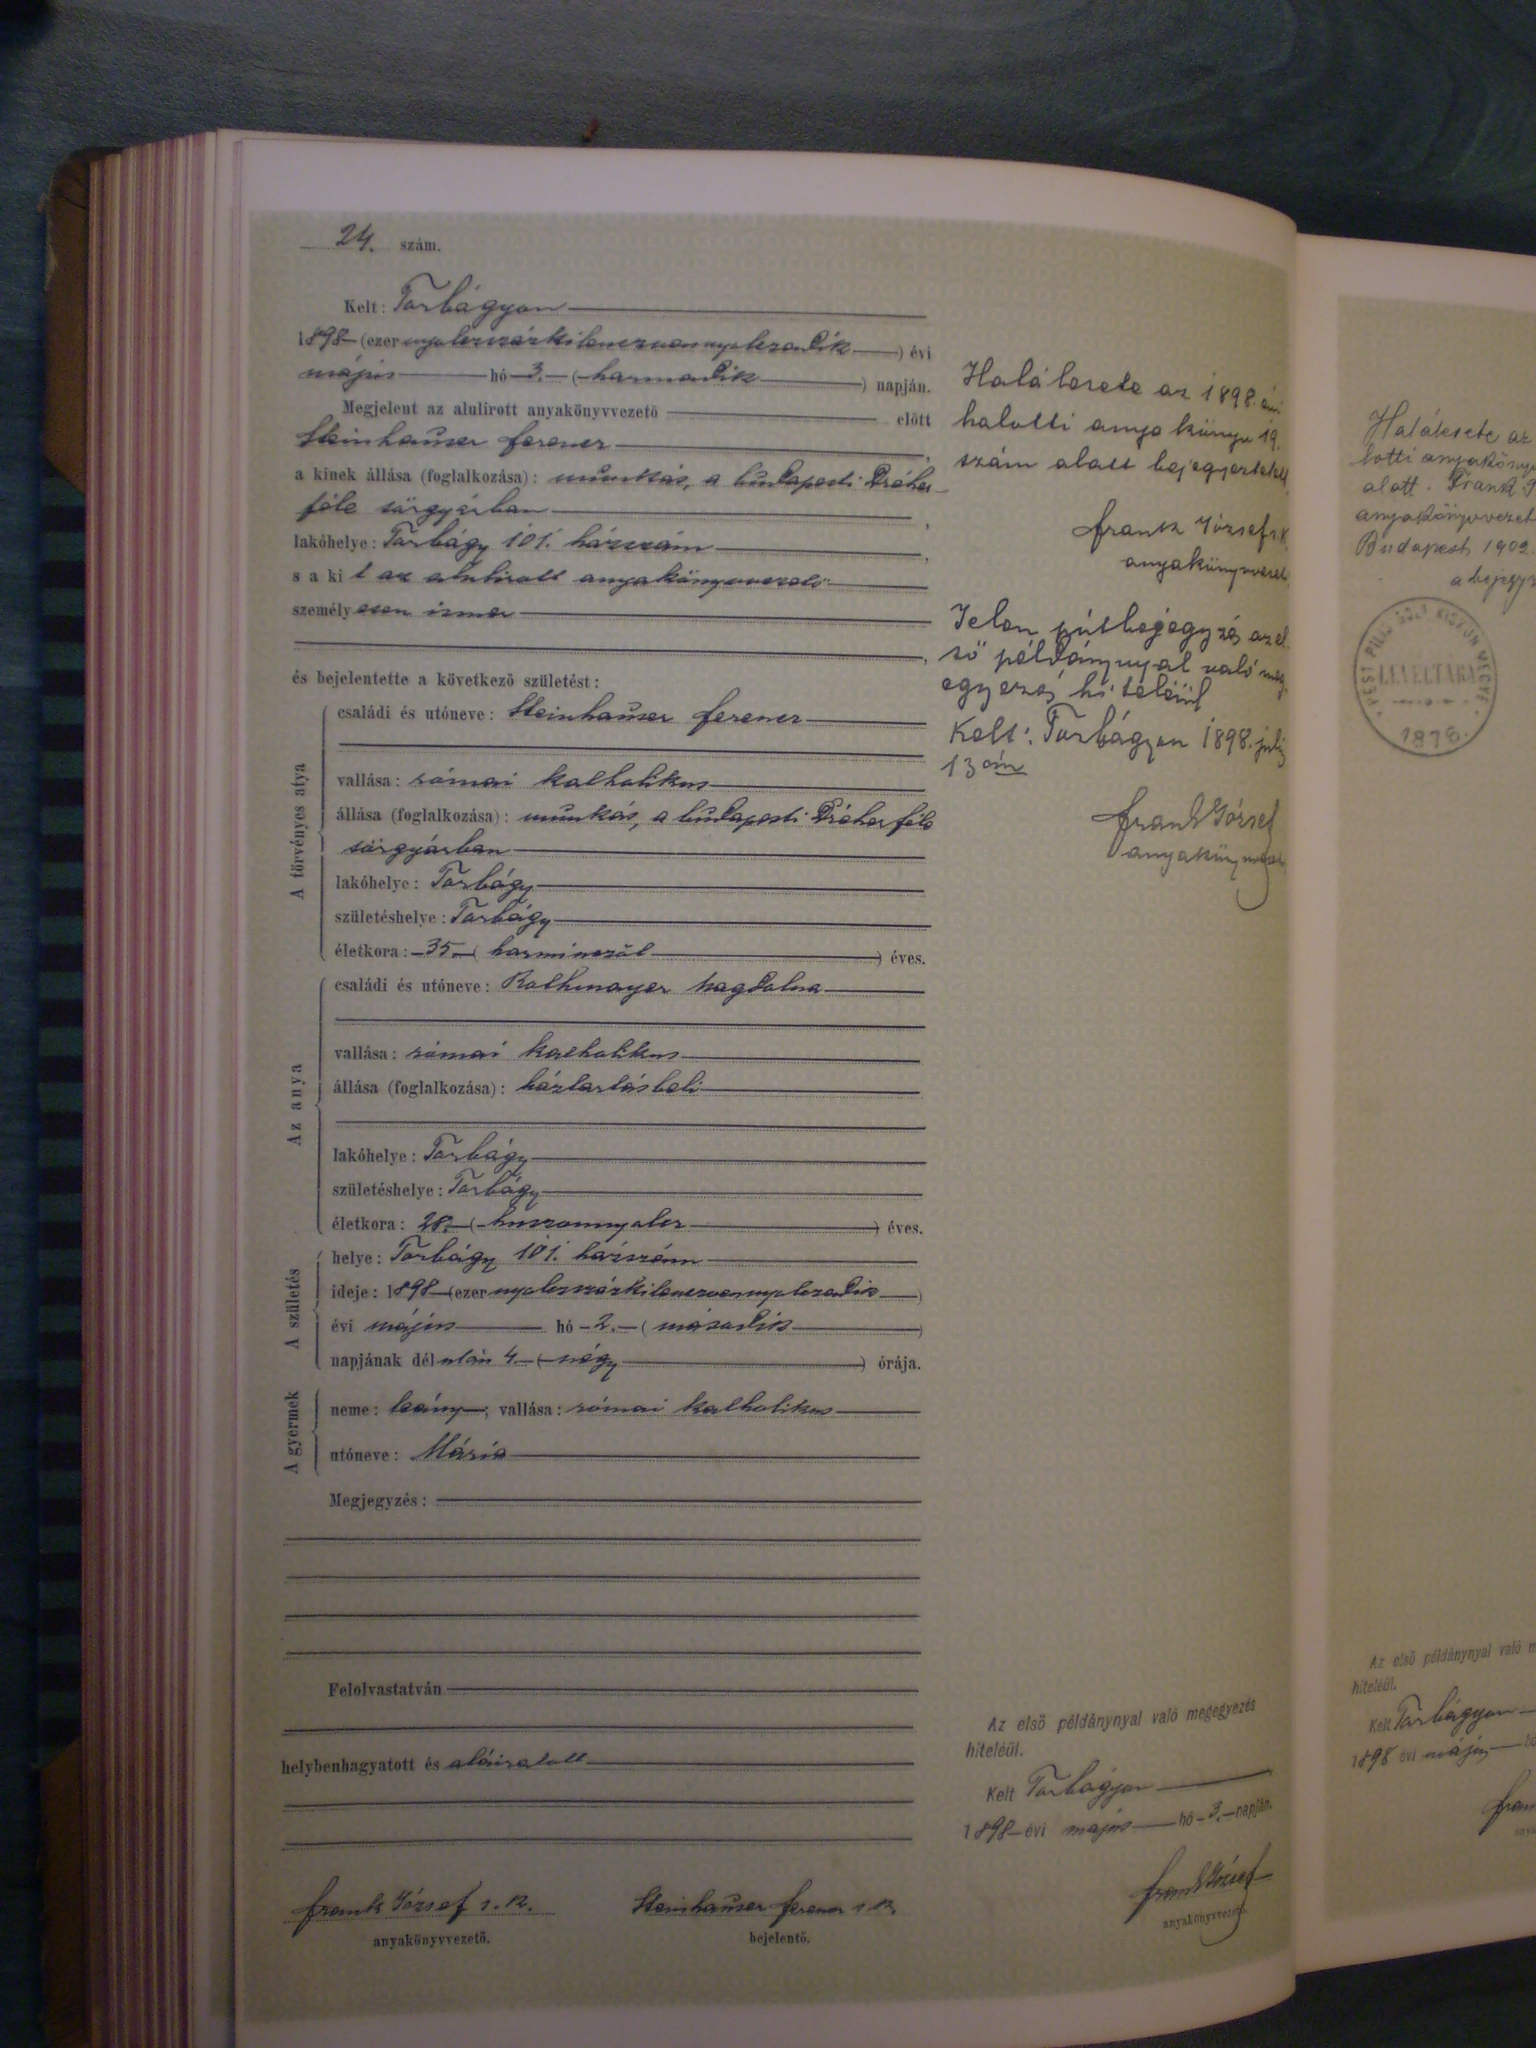 24. szám.
Kelt: Torbágyon
1898 (ezer nyolczszázkilenczvennyolczadik) évi
május hó 3. (harmadik) napján.
Megjelent az alulirott anyakönyvvezető előtt
Steinhauser Ferencz,
a kinek állása (foglalkozása): munkás, a budapesti Dréher
féle sörgyárban,
lakóhelye: Torbágy 101. házszám,
s a kit az alulirott anyakönyvvezető
személyesen ismer
,
és bejelentette a következő születést:
A törvényes atya
családi és utóneve: Steinhauser Ferencz
vallása: római katholikus
állása (foglalkozása): munkás, a budapesti Dréher féle
sörgyárban
lakóhelye: Torbágy
születéshelye: Torbágy
életkora: 35 (harminczöt) éves.
Az anya
családi és utóneve: Rothmayer Magdolna
vallása: római katholikus
állása (foglalkozása): háztartásbeli
lakóhelye: Torbágy
születéshelye: Torbágy
életkora: 28. (huszonnyolcz) éves.
A születés
helye: Torbágy 101. házszám
ideje: 1898 (ezer nyolczszázkilenczvennyolczadik)
évi május hó 2. (második)
napjának délután 4. (négy) órája.
A gyermek
neme: leány; vallása: római katholikus
utóneve: Mária
Megjegyzés:
Felolvastatván
helybenhagyatott és aláiratott
Frank József s. k.
anyakönyvvezető.
Steinhauser Ferencz s. k.
bejelentő.
Halálesete az 1898. évi
halotti anyakönyv 19.
szám alatt bejegyeztetett
Frank József s. k.
anyakönyvvezető
Jelen utóbejegyzés az el-
ső példánynyal való meg-
egyezés hiteléül
Kelt: Torbágyon 1898. juli
13 án
Frank József
anyakönyvvezető
Az első példánynyal való megegyezés
hiteléül.
Kelt Torbágyon
1898 évi május hó 3. napján.
Frank József
anyakönyvvezető.
Halálesete az
lotti anyakönyv
alatt. Frank J
anyakönyvvezet
Budapest 1902.
a bejegyz
PEST PILIS SOLT KISKUN VEGYE
LEVELTÁRA
1876.
Az első példánynyal való m
hiteléül.
Kelt Torbágyon
1898 évi május hó
Fran
anya